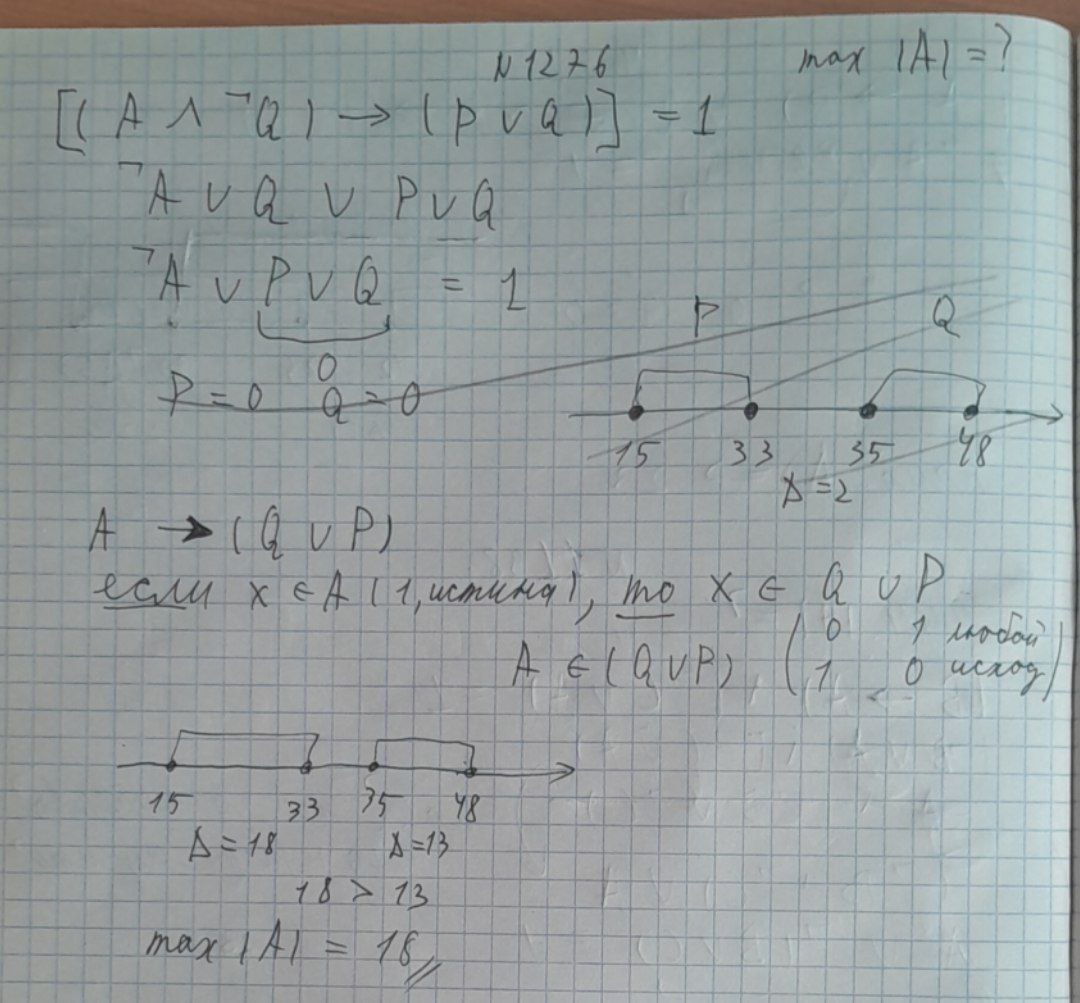 N1276
max |A| = ?
[(A ∧ ¬Q) → (P ∨ Q)] = 1
¬A ∨ Q ∨ P ∨ Q
¬A ∨ P ∨ Q = 1
0
P = 0 Q = 0
P Q
15 33 35 48
Δ = 2
A → (Q ∨ P)
если x ∈ A (1, истина), то x ∈ Q ∨ P
A ∈ (Q ∨ P) ( 0 1 любой
1 0 исход )
15 33 35 48
Δ = 18 Δ = 13
18 > 13
max |A| = 18